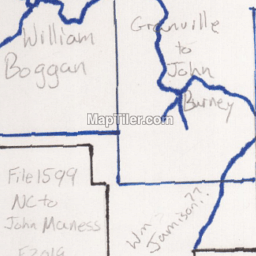 William
Boggan
Granville
to
John
Burney
MapTiler.com
File 1599
NC to
John Maness
Wm
Jamison??